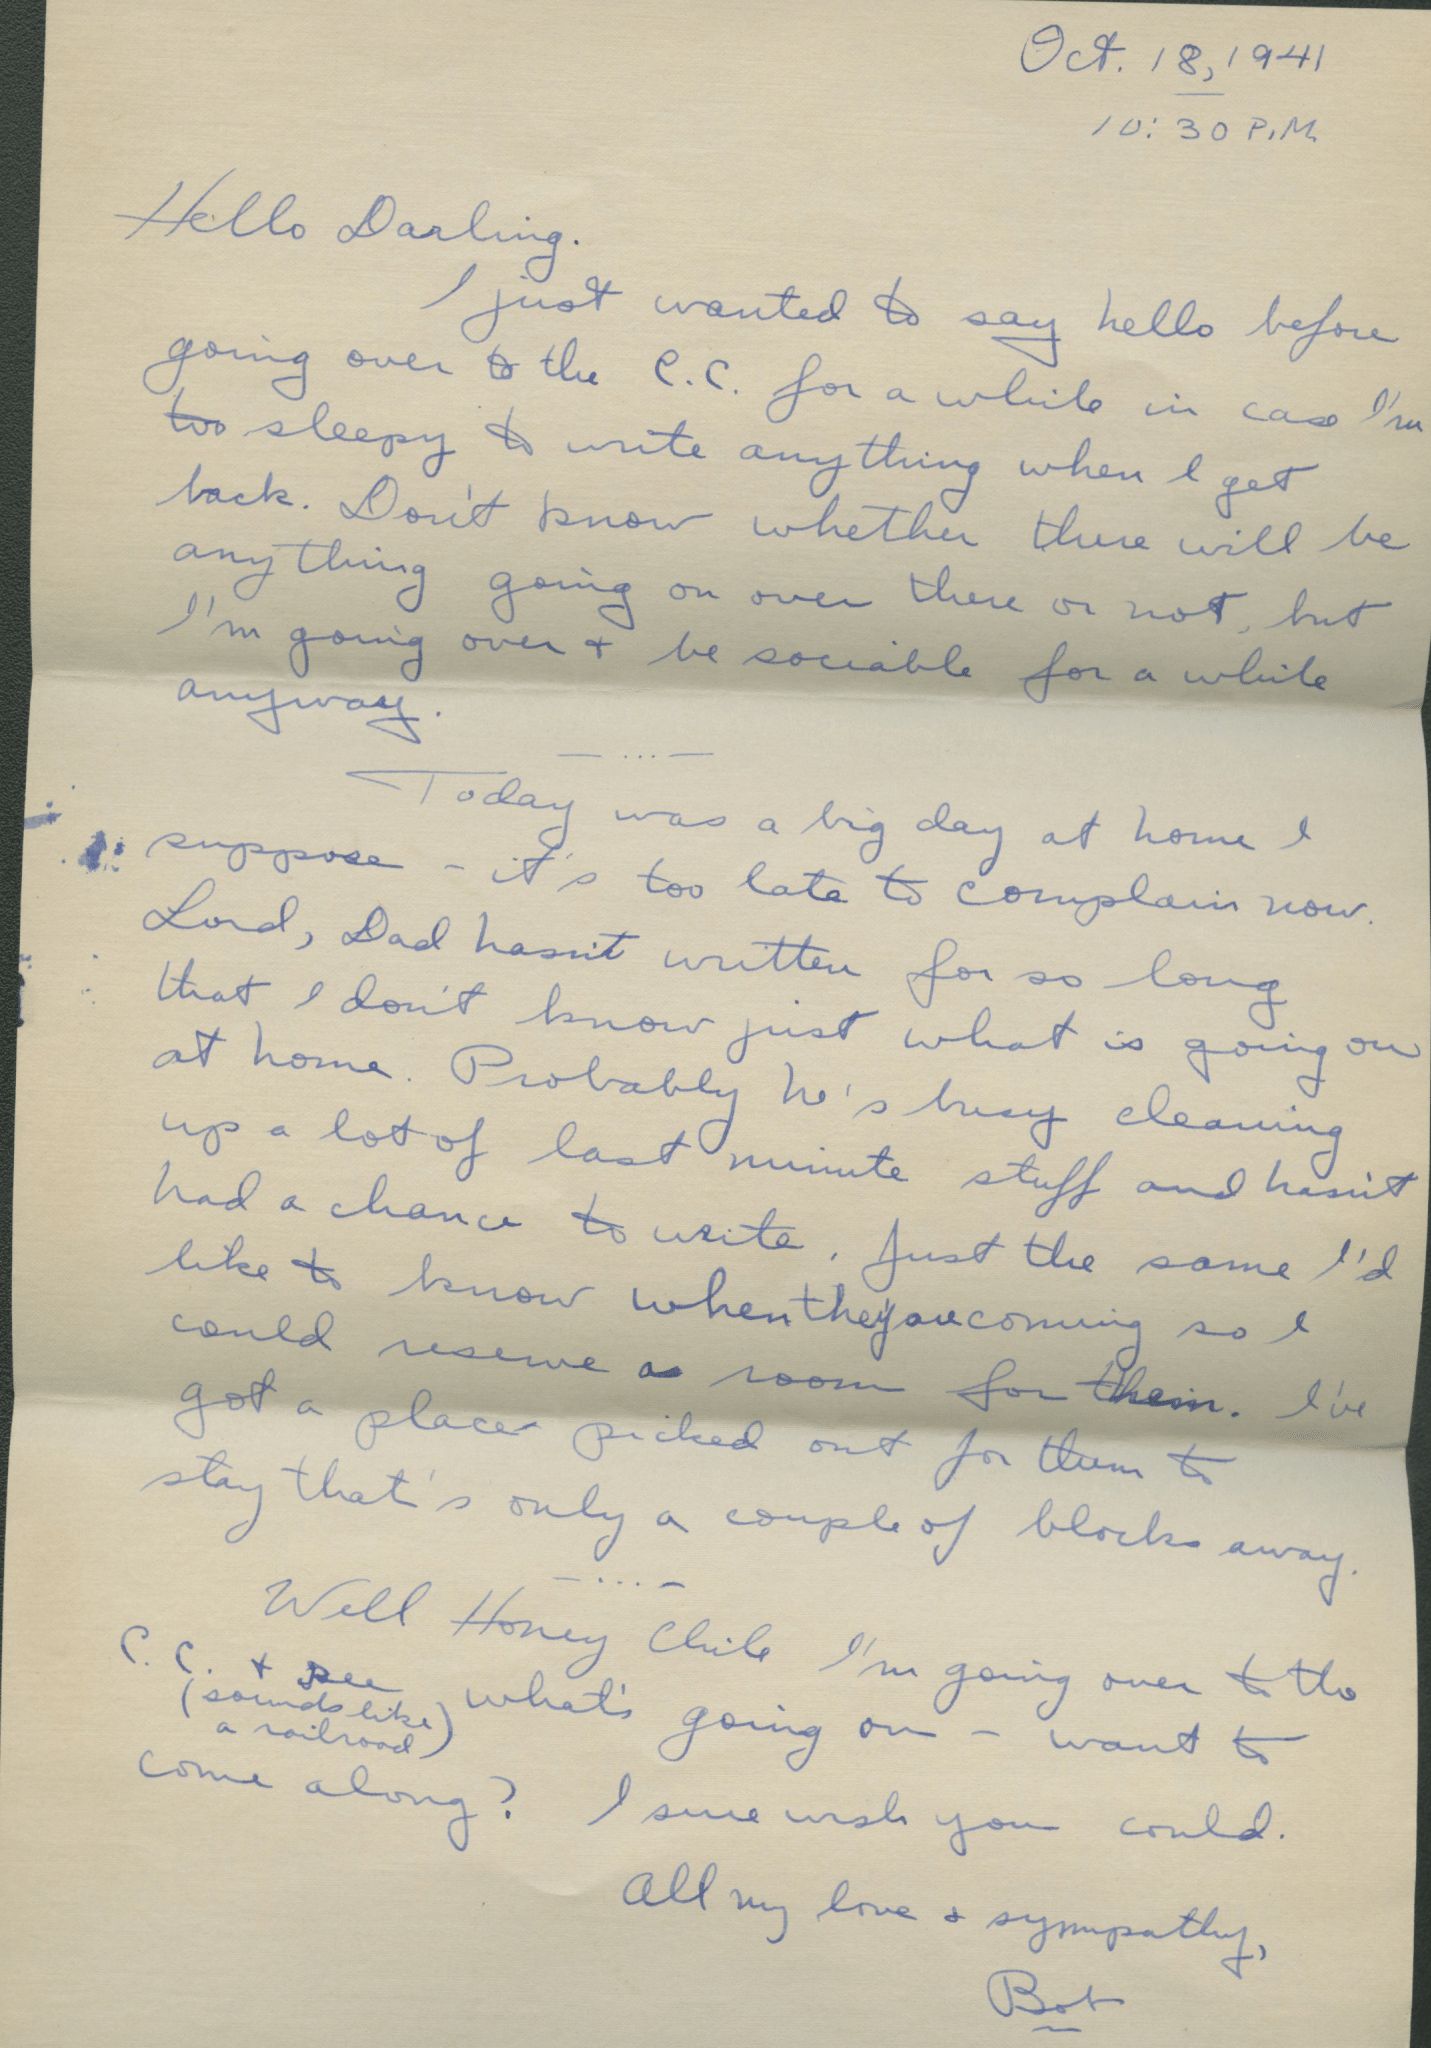 Oct. 18, 1941
10:30 P.M.
Hello Darling.
I just wanted to say hello before
going over to the C.C. for a while in case I'm
too sleepy to write anything when I get
back. Don't know whether there will be
anything going on over there or not, but
I'm going over + be sociable for a while
anyway.
— ... —
Today was a big day at home I
suppose - it's too late to complain now.
Lord, Dad hasn't written for so long
that I don't know just what is going on
at home. Probably he's busy cleaning
up a lot of last minute stuff and hasn't
had a chance to write. Just the same I'd
like to know when they're coming so I
could reserve a room for them. I've
got a place picked out for them to
stay that's only a couple of blocks away.
— ... —
Well Honey Chile I'm going over to the
C.C. + see what's going on - want to
(sounds like
a railroad)
come along? I sure wish you could.
All my love + sympathy,
Bob